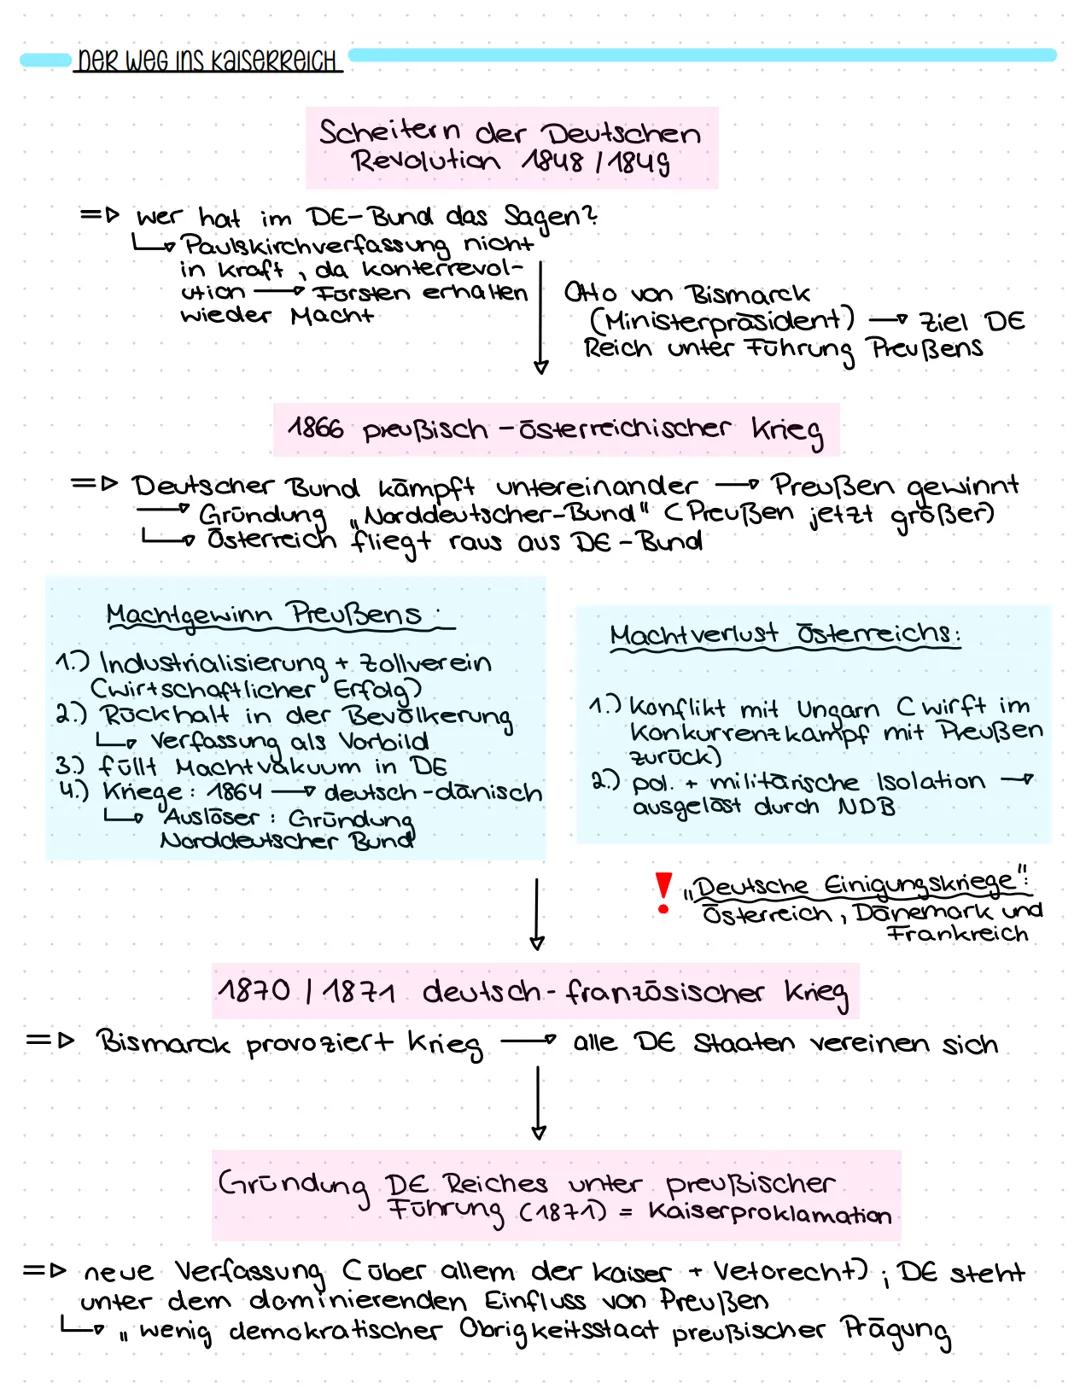 DER WEG INS KAISERREICH
Scheitern der Deutschen
Revolution 1848 / 1849
=▷ wer hat im DE-Bund das Sagen?
↳ Paulskirchverfassung nicht
in kraft, da konterrevol-
ution → Fürsten erhalten
wieder Macht
Otto von Bismarck
(Ministerpräsident) → Ziel DE
Reich unter Führung Preußens
1866 preußisch - österreichischer Krieg
=▷ Deutscher Bund kämpft untereinander → Preußen gewinnt
→ Gründung „Norddeutscher-Bund" (Preußen jetzt größer)
↳ Österreich fliegt raus aus DE-Bund
Machtgewinn Preußens:
1.) Industrialisierung + Zollverein
(wirtschaftlicher Erfolg)
2.) Rückhalt in der Bevölkerung
↳ Verfassung als Vorbild
3.) füllt Machtvakuum in DE
4.) Kriege: 1864 → deutsch-dänisch
↳ Auslöser: Gründung
Norddeutscher Bund
Machtverlust Österreichs:
1.) Konflikt mit Ungarn (wirft im
Konkurrenzkampf mit Preußen
zurück)
2.) pol. + militärische Isolation →
ausgelöst durch NDB
! „Deutsche Einigungskriege":
Österreich, Dänemark und
Frankreich
1870 / 1871 deutsch-französischer Krieg
=▷ Bismarck provoziert Krieg → alle DE Staaten vereinen sich
Gründung DE Reiches unter preußischer
Führung (1871) = Kaiserproklamation
=▷ neue Verfassung (über allem der Kaiser + Vetorecht); DE steht
unter dem dominierenden Einfluss von Preußen
↳ „wenig demokratischer Obrigkeitsstaat preußischer Prägung